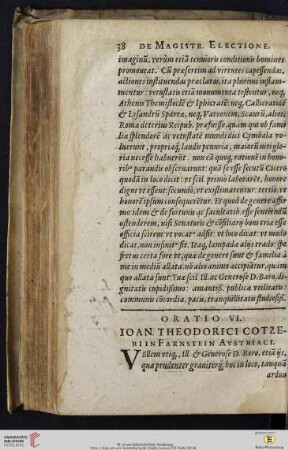 38 DE MAGISTR. ELECTIONE.
imaginũ, verùm etiã tenuioris conditionis homines
promoueat. Cũ præsertim ad virtutes capessendas,
actiones instituendas præclaras, ita plurimi instam-
mentur: vetustatis etiã monumenta testentur, neq́;
Athenis Themistoclẽ & Iphicratẽ: neq́; Callicratidẽ
& Lysandrũ Spartæ, neq́; Varronem, Scaurũ, alios,
Romæ deterius Reipub. præfuisse, quàm qui ob fami
liæ splendorẽ ac vetustatẽ mundi dici Cymbala vo-
luerunt, propriaq́; laudis penuria, maiorũ niti glo-
ria necesse habuerũt. non eã quoq́; rationẽ in honori-
bus parandis obseruatunt: quã se esse secutũ Cicero
quodã in loco dicit: vt scil. primò laborarẽt, honore
digni vt essent: secundò, vt existimarentur: tertiò, vt
honorẽ ipsum consequerẽtur. Et quod de genere affir
mo: idem & de fortunis ac facultatib. esse sentiendũ
ostenderem, nisi Senatoris & cõsiliarij bonorũ esse
officia scirem vt vocatus adsit: vt loco dicat: vt modo
dicat, non infinitus sit. Itaq́; lampada alijs trado: spe
fretus certa fore vt, quæ de genere sunt & familia à
me in mediũ allata: ni alio animo accipiatis, quàm
quo allata sunt: Tuæ scil. Ill. ac Generose D. Baro, di-
gnitatis cupidissimo: amantiss. publicæ vtilitatis:
communis cõcordiæ, pacis, tranquillitatis studiosiss.
ORATIO VI.
IOAN. THEODORICI COTZE-
RI IN FARNSTEIN AVSTRIACI.
VEllem vtiq́;, Ill. & Generose D. Baro, etiã ijs,
qua prudenter grauiterq́;, hoc in loco, tanquã
ardua
UNIVERSITÄTS-
BIBLIOTHEK
HEIDELBERG
© Universitätsbibliothek Heidelberg
Baden-Württemberg